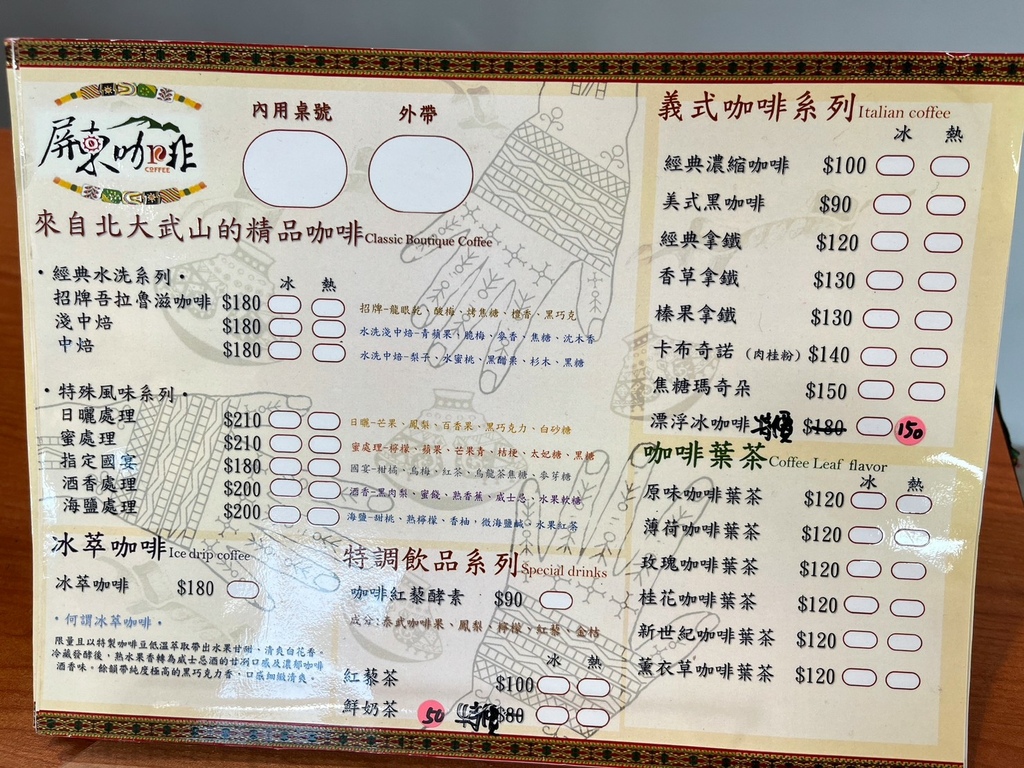 屏東咖啡
COFFEE
內用桌號 外帶
來自北大武山的精品咖啡 Classic Boutique Coffee
・經典水洗系列・ 冰 熱
招牌吾拉魯滋咖啡 $180 招牌-龍眼乾、酸梅、烤焦糖、檀香、黑巧克
淺中焙 $180 水洗淺中焙-青蘋果、脆梅、麥香、焦糖、沈木香
中焙 $180 水洗中焙-梨子、水蜜桃、黑醋栗、杉木、黑糖
・特殊風味系列・
日曬處理 $210 日曬-芒果、鳳梨、百香果、黑巧克力、白砂糖
蜜處理 $210 蜜處理-檸檬、蘋果、芒果青、桔梗、太妃糖、黑糖
指定國宴 $180 國宴-柑橘、烏梅、紅茶、烏龍茶焦糖、麥芽糖
酒香處理 $200 酒香-黑肉梨、蜜餞、熟香蕉、威士忌、水果軟糖
海鹽處理 $200 海鹽-甜桃、熟檸檬、香柚，微海鹽鹹、水果紅茶
冰萃咖啡 Ice drip coffee
冰萃咖啡 $180
・何謂冰萃咖啡・
限量且以特製咖啡豆低溫萃取帶出水果甘甜、清爽白花香。
冷藏發酵後，熱水果香轉為威士忌酒的甘冽口感及濃郁咖啡
酒香味。餘韻帶純度極高的黑巧克力香，口感細緻清爽。
特調飲品系列 Special drinks
咖啡紅藜酵素 $90
成分:泰武咖啡果、鳳梨、檸檬、紅藜、金桔
冰 熱
紅藜茶 $100
鮮奶茶 50 特價 $80
義式咖啡系列 Italian coffee
冰 熱
經典濃縮咖啡 $100
美式黑咖啡 $90
經典拿鐵 $120
香草拿鐵 $130
榛果拿鐵 $130
卡布奇諾 (肉桂粉) $140
焦糖瑪奇朵 $150
漂浮冰咖啡 特價 $180 150
咖啡葉茶 Coffee Leaf flavor
冰 熱
原味咖啡葉茶 $120
薄荷咖啡葉茶 $120
玫瑰咖啡葉茶 $120
桂花咖啡葉茶 $120
新世紀咖啡葉茶 $120
薰衣草咖啡葉茶 $120